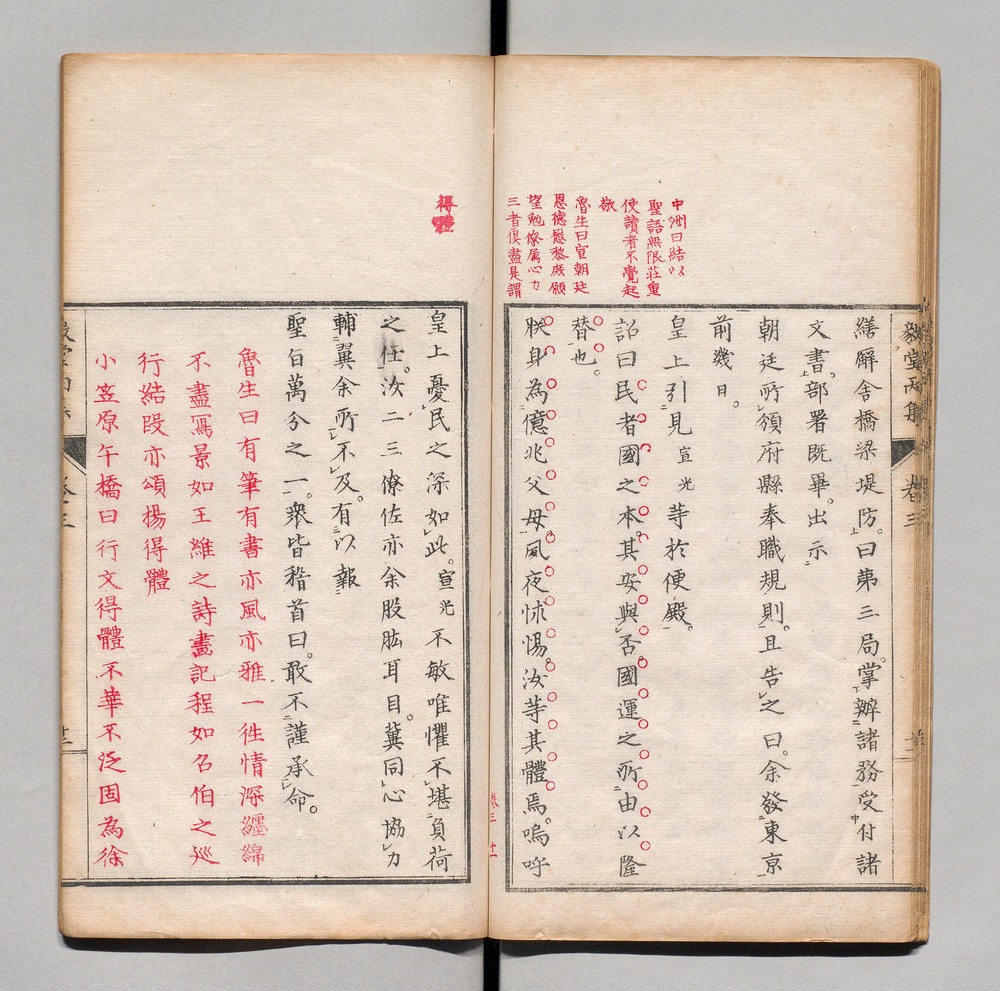 中洲曰結以
聖語無限莊重
使讀者不覺起
敬
魯生曰宣朝廷
恩德慰黎庶願
望勉僚属心力
三者俱盡是謂
得體
毅堂丙集
卷三
繕廨舍橋梁堤防。曰第三局。掌辦諸務受付諸
文書。部署既畢。出示
朝廷所頒府縣奉職規則。且告之曰。余發東京
前幾日。
皇上引見宣光等於便殿。
詔曰民者國之本。其安與否。國運之所由以隆
替也。
朕身為億兆父母。夙夜怵惕。汝等其體焉。嗚呼
卷三 十一
皇上憂民之深如此。宣光不敏唯懼不堪負荷
之仕。汝二三僚佐亦余股肱耳目。冀同心協力
輔翼余所不及。有以報
聖旨萬分之一。衆皆稽首曰。敢不謹承命。
魯生曰有筆有書亦風亦雅一徃情深纏綿
不盡寫景如王維之詩畫記程如召伯之巡
行結段亦頌揚得體
小笠原午橋曰行文得體不華不泛固為徐